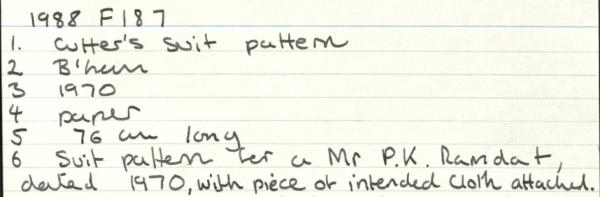 1988 F187
1. Cutter's suit pattern
2 B'ham
3 1970
4 paper
5 76 cm long
6 Suit pattern for a Mr P.K. Ramdat,
dated 1970, with piece of intended cloth attached.